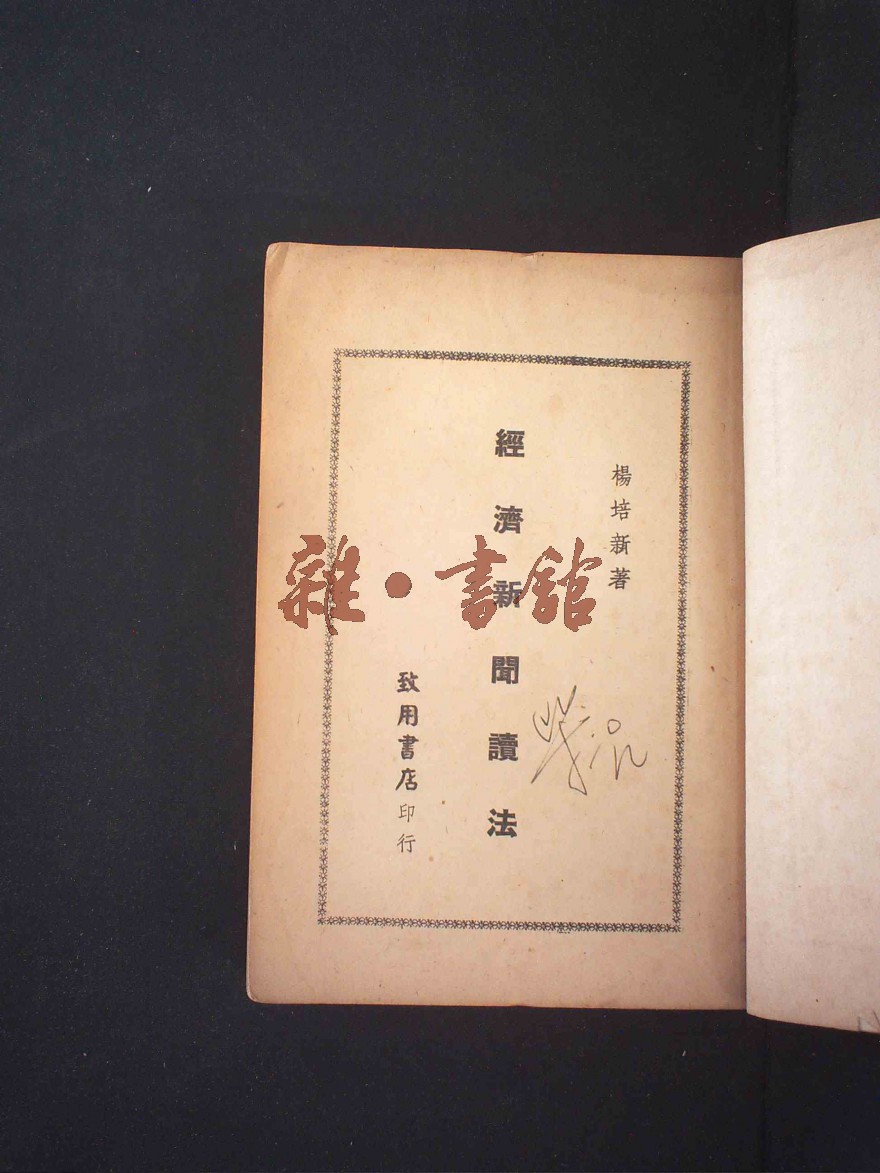 楊培新著
經濟新聞讀法
致用書店印行
雜·書館